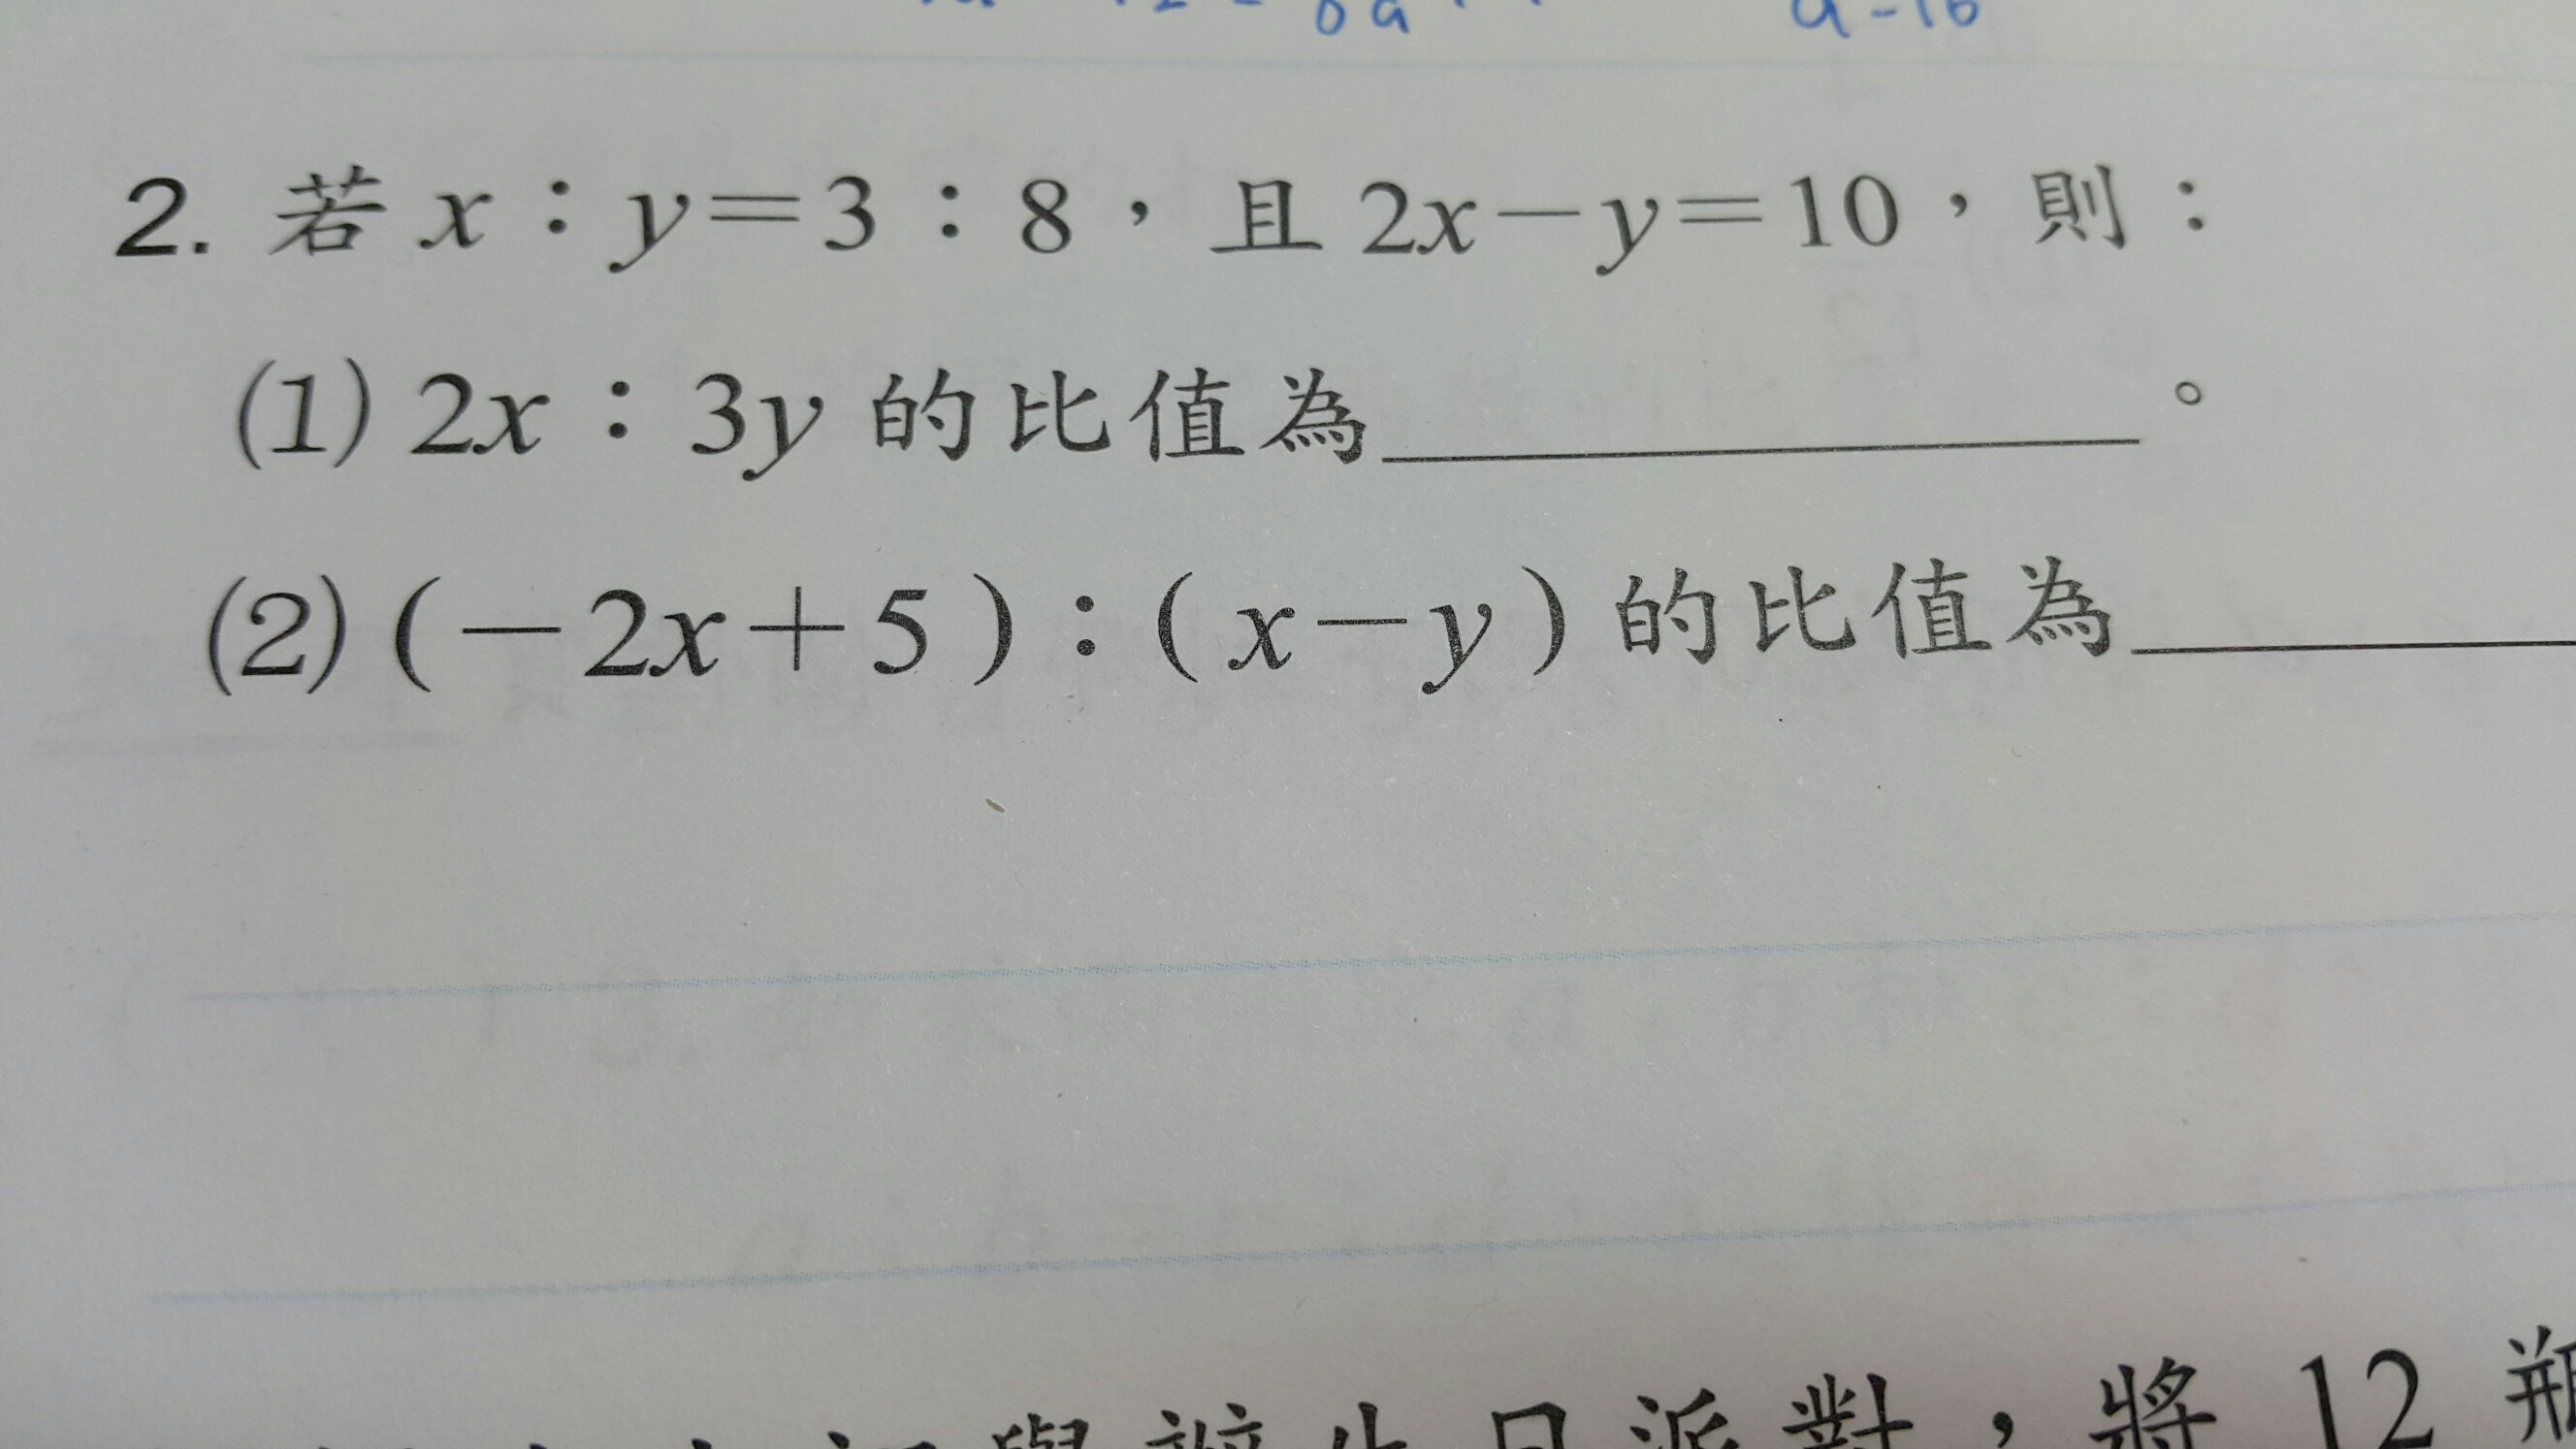 2. 若 x：y＝3：8，且 2x－y＝10，則：
(1) 2x：3y 的比值為＿＿＿＿＿＿。
(2)（－2x＋5）：（x－y）的比值為＿＿＿＿
生日派對，將 12 瓶